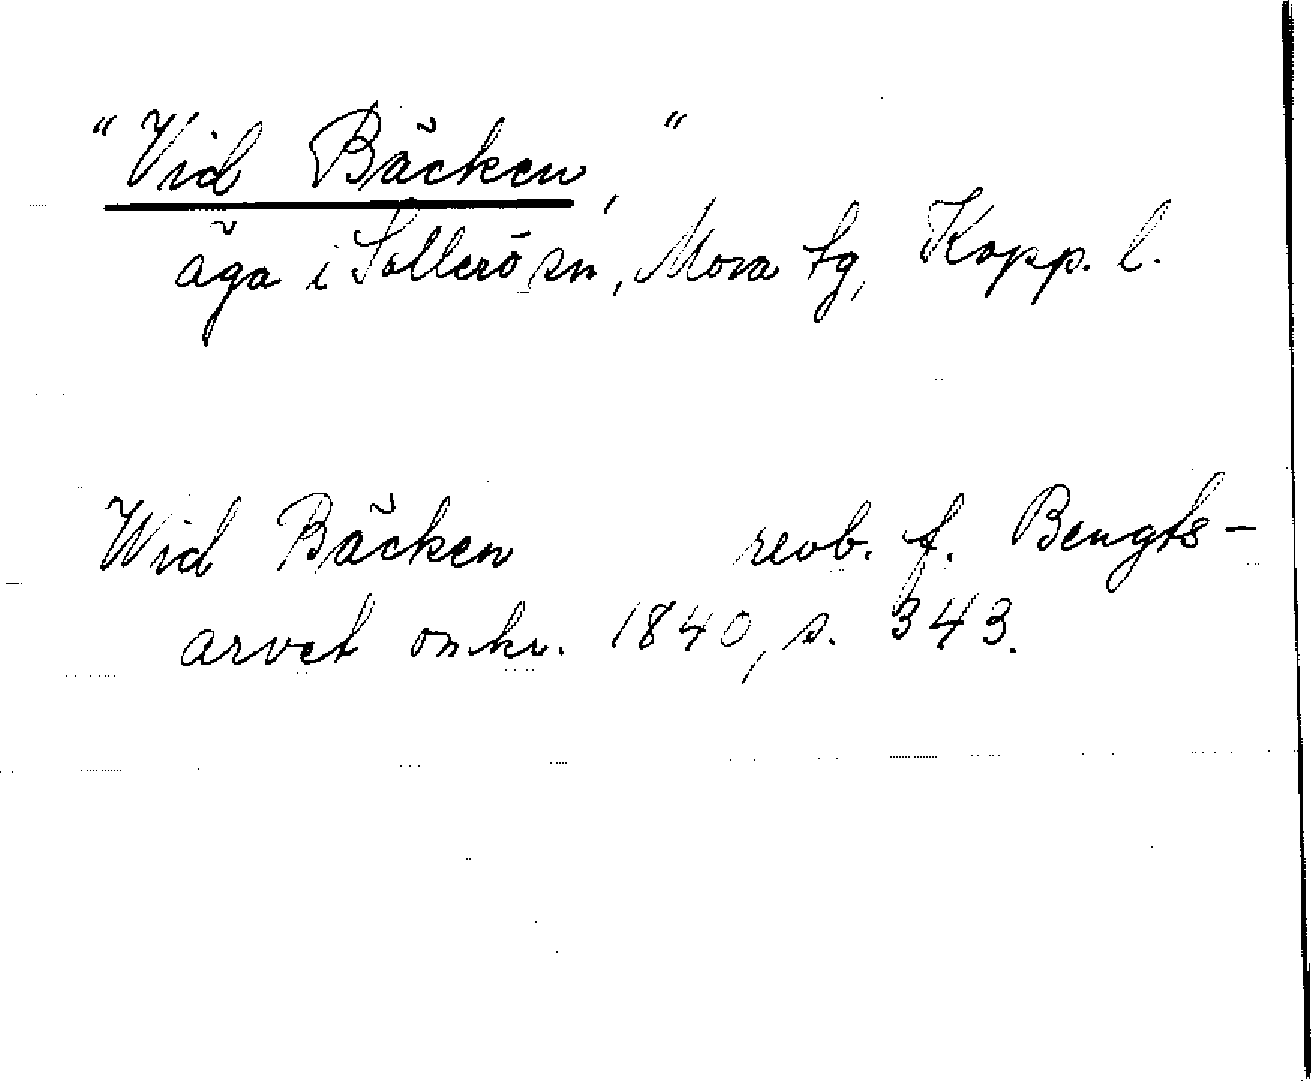 "Vid Bäcken,"
äga i Sollerö sn, Mora tg, Kopp. l.
Wid Bäcken revb. f. Bengts-
arvet omkr. 1840, s. 343.